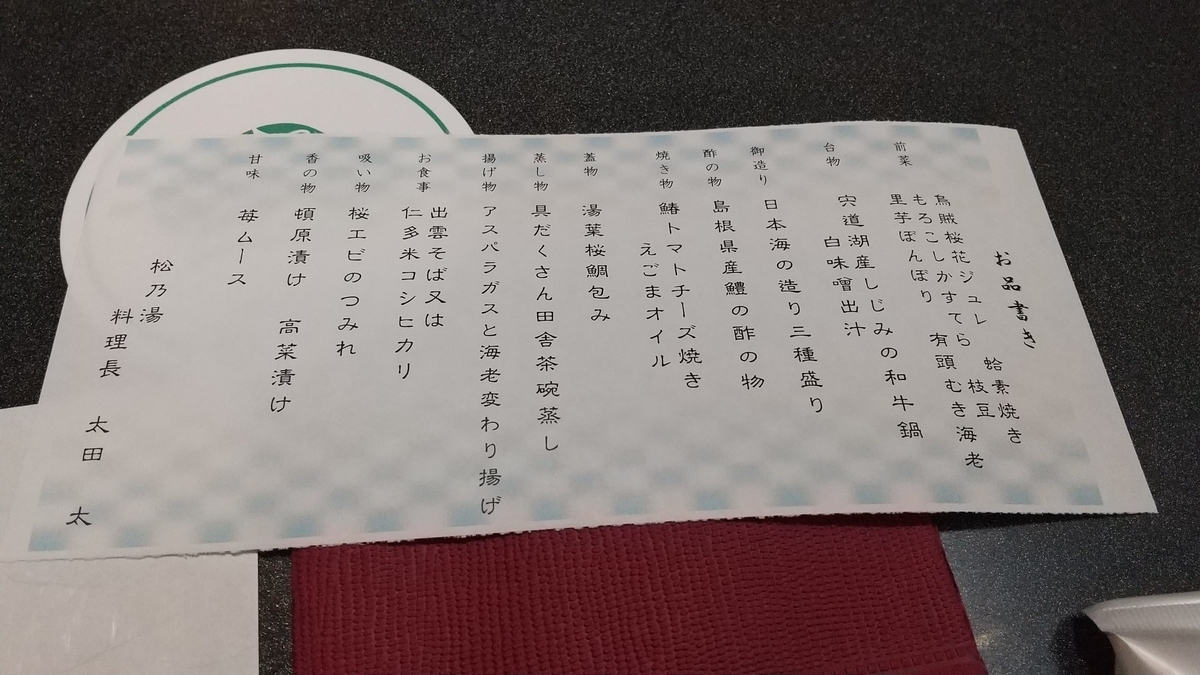 お品書き
前菜
烏賊桜花ジュレ 蛤素焼き
もろこしかすてら 枝豆
里芋ぼんぼり 有頭むき海老
台物
宍道湖産しじみの和牛鍋
白味噌出汁
御造り
日本海の造り三種盛り
酢の物
島根県産鱧の酢の物
焼き物
鰆トマトチーズ焼き
えごまオイル
蓋物
湯葉桜鯛包み
蒸し物
具だくさん田舎茶碗蒸し
揚げ物
アスパラガスと海老変わり揚げ
お食事
出雲そば又は
仁多米コシヒカリ
吸い物
桜エビのつみれ
香の物
頓原漬け 高菜漬け
甘味
苺ムース
松乃湯
料理長 太田 太